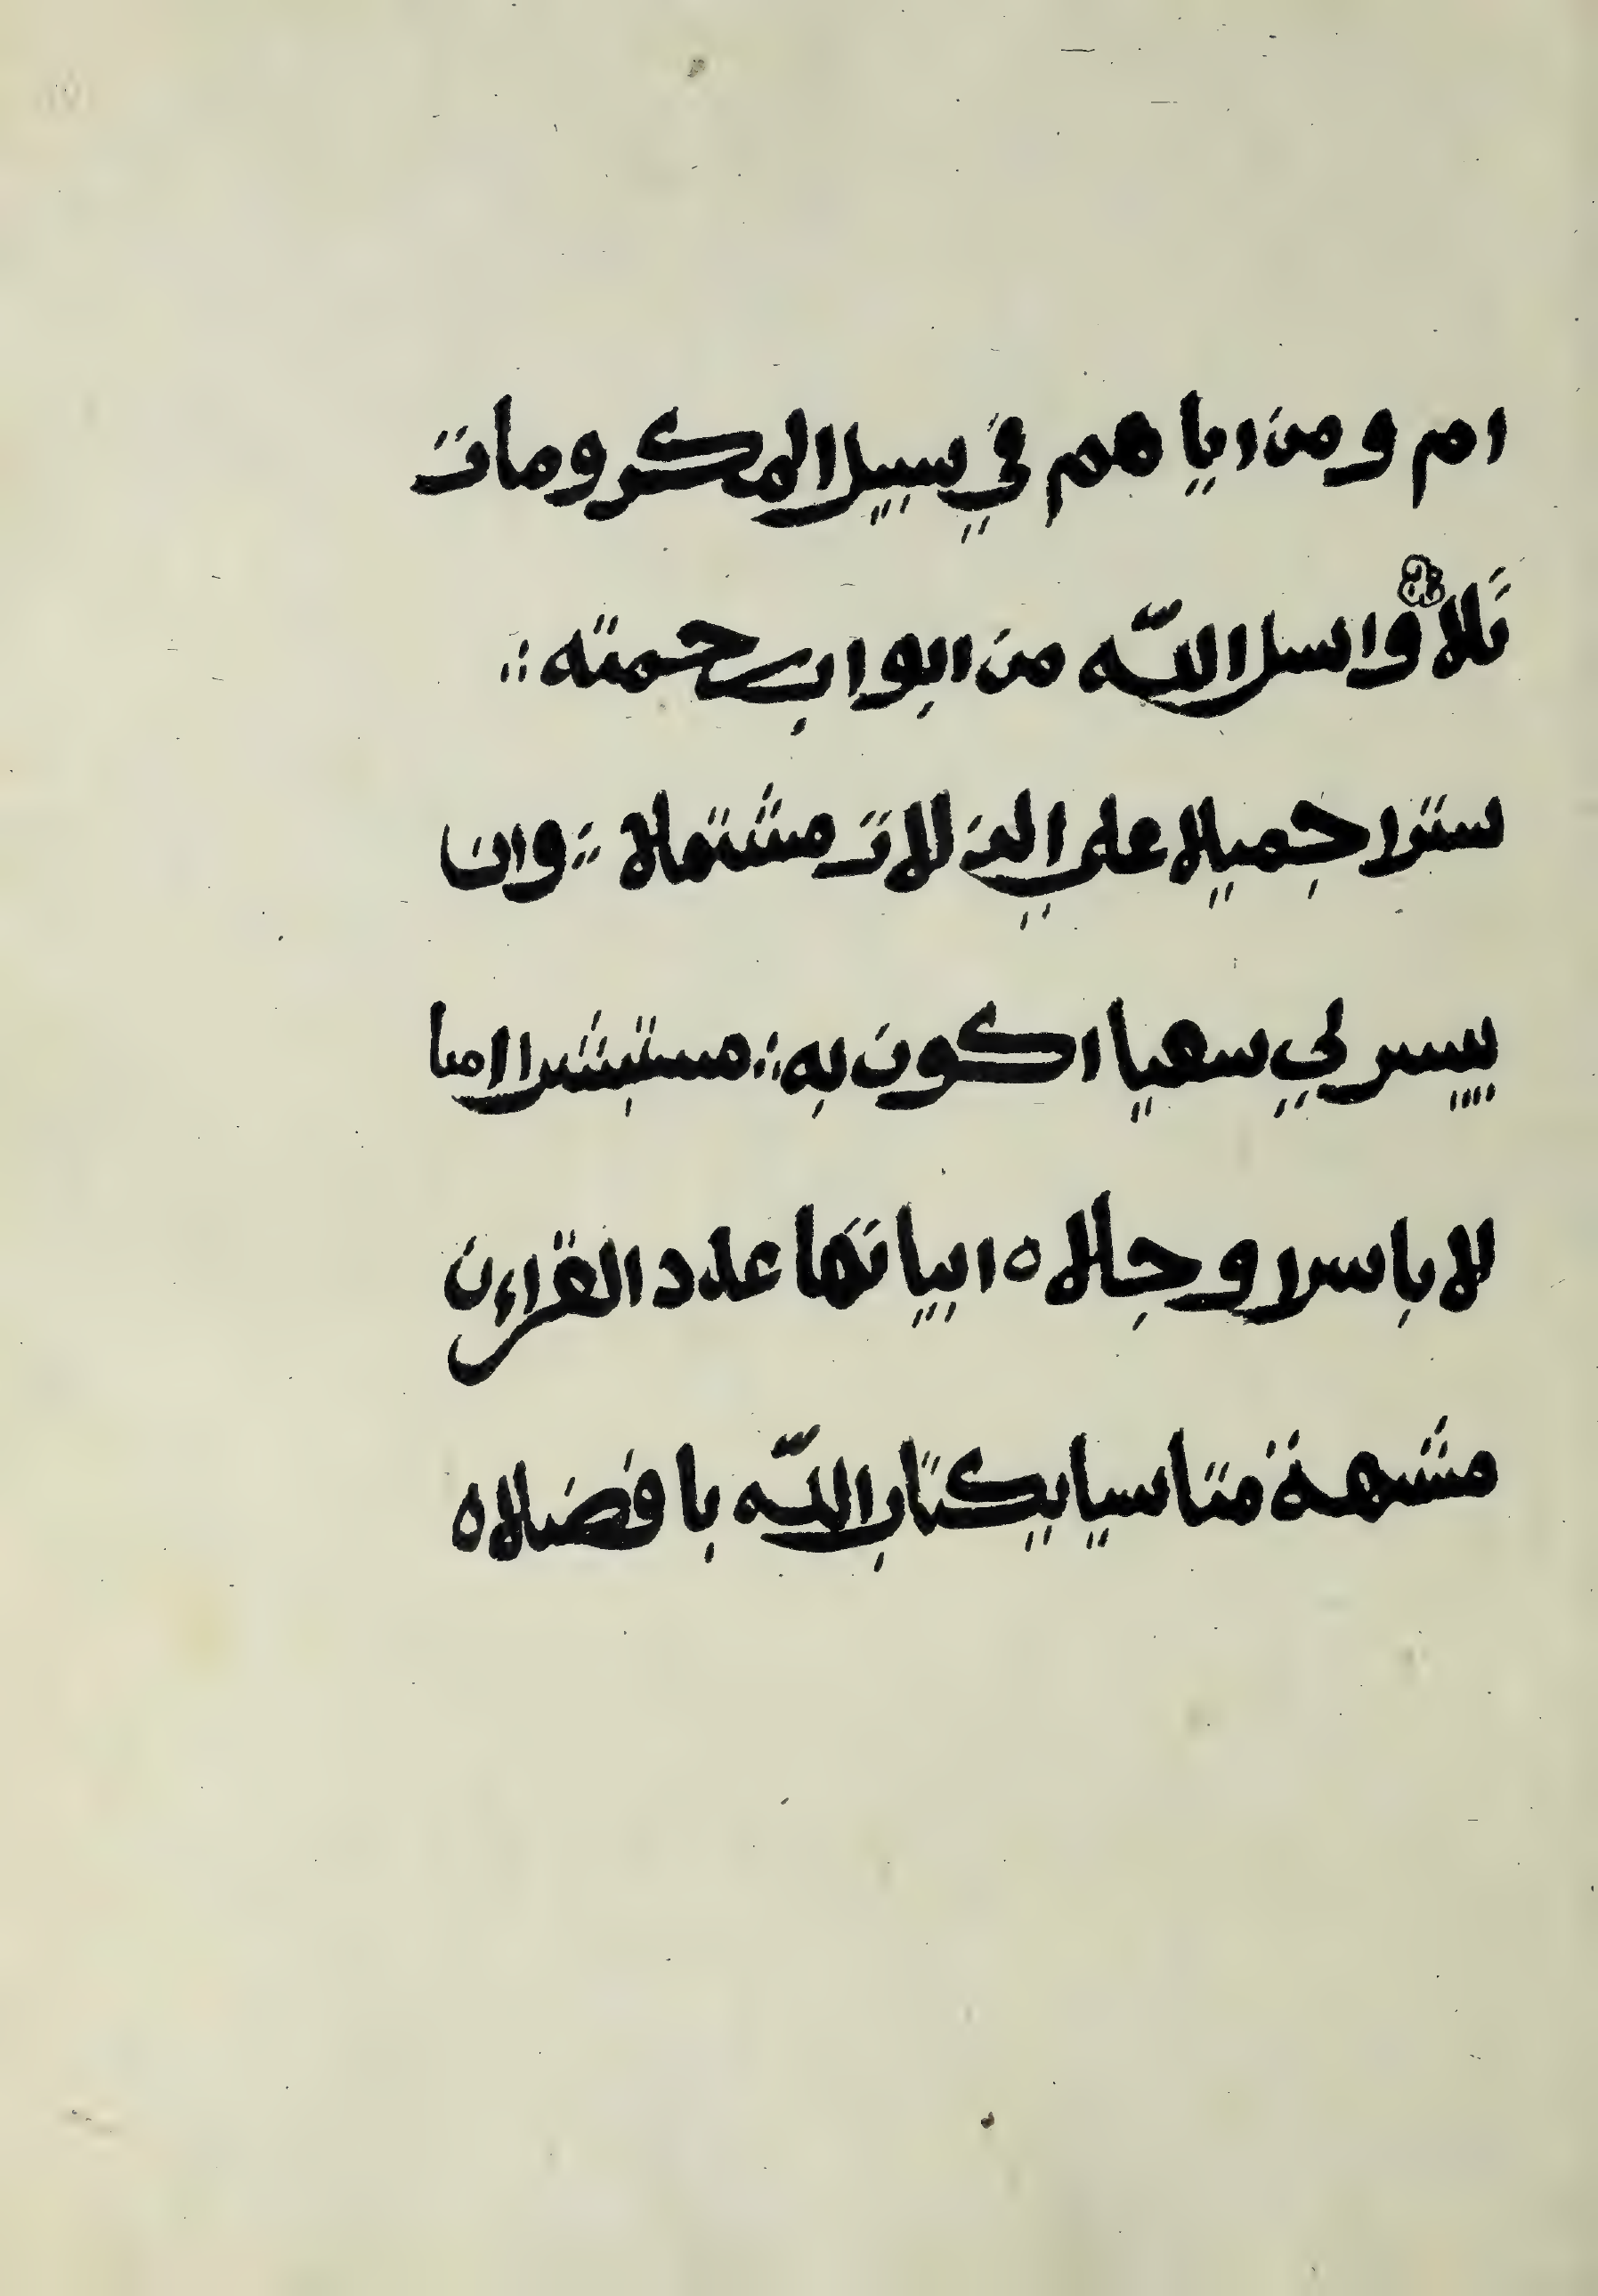 ام ومن اياهم في سبيل المكرومات
تلا واسل الله من ابواب رحمته ؞
سترا جميلا علي الذ للات مشتملا ؞ وان
ييسر لي سعيا اكون به ؞ مستبشرا امنا
لا باسرا وجلا ه ابياتها عدد القراءن
مشبهة متاسيا بكتاب الله با فضلا ه